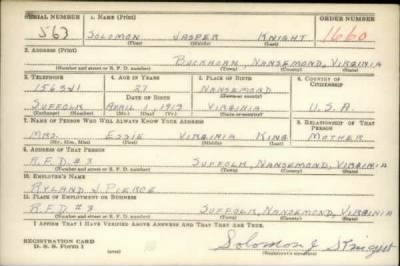 SERIAL NUMBER 1. NAME (Print) ORDER NUMBER
563 SOLOMON JASPER KNIGHT 1660
(First) (Middle) (Last)
2. ADDRESS (Print)
BUCKHORN, NANSEMOND, VIRGINIA
(Number and street or R. F. D. number) (Town) (County) (State)
3. TELEPHONE 4. AGE IN YEARS 5. PLACE OF BIRTH 6. COUNTRY OF CITIZENSHIP
27 NANSEMOND
DATE OF BIRTH (Town or county)
SUFFOLK APRIL 1, 1913 VIRGINIA U.S.A.
(Exchange) (Number) (Mo.) (Day) (Yr.) (State or country)
7. NAME OF PERSON WHO WILL ALWAYS KNOW YOUR ADDRESS 8. RELATIONSHIP OF THAT PERSON
MRS. ESSIE VIRGINIA KING MOTHER
(Mr., Mrs., Miss) (First) (Middle) (Last)
9. ADDRESS OF THAT PERSON
R.F.D. #3 SUFFOLK, NANSEMOND, VIRGINIA
(Number and street or R. F. D. number) (Town) (County) (State)
10. EMPLOYER'S NAME
RYLAND J. PIERCE
11. PLACE OF EMPLOYMENT OR BUSINESS
R.F.D. #3 SUFFOLK, NANSEMOND, VIRGINIA
(Number and street or R. F. D. number) (Town) (County) (State)
I AFFIRM THAT I HAVE VERIFIED ABOVE ANSWERS AND THAT THEY ARE TRUE.
REGISTRATION CARD
D. S. S. Form 1 (over) Solomon J Knight
(Registrant's signature)